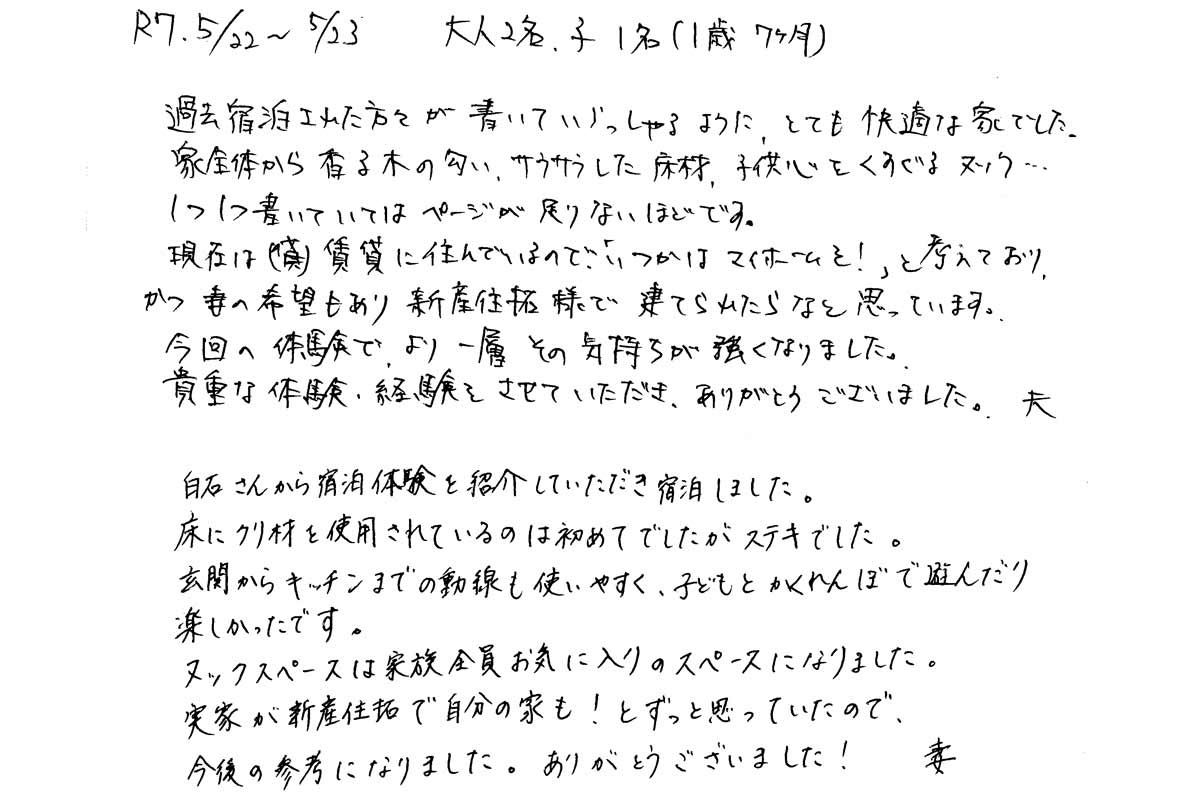 R7.5/22～5/23 大人2名、子1名(1歳7ヶ月)
過去宿泊された方々が書いていらっしゃるように、とても快適な家でした。
家全体から香る木の匂い、サラサラした床材、子供心をくすぐるヌック…
1つ1つ書いていてはページが足りないほどです。
現在は 賃貸に住んでいるので、「いつかはマイホームを！」と考えており、
かつ妻の希望もあり新産住拓様で建てられたらなと思っています。
今回の体験で、より一層その気持ちが強くなりました。
貴重な体験・経験をさせていただき、ありがとうございました。 夫
白石さんから宿泊体験を紹介していただき宿泊しました。
床にクリ材を使用されているのは初めてでしたがステキでした。
玄関からキッチンまでの動線も使いやすく、子どもとかくれんぼで遊んだり
楽しかったです。
ヌックスペースは家族全員お気に入りのスペースになりました。
実家が新産住拓で自分の家も！とずっと思っていたので、
今後の参考になりました。ありがとうございました！ 妻